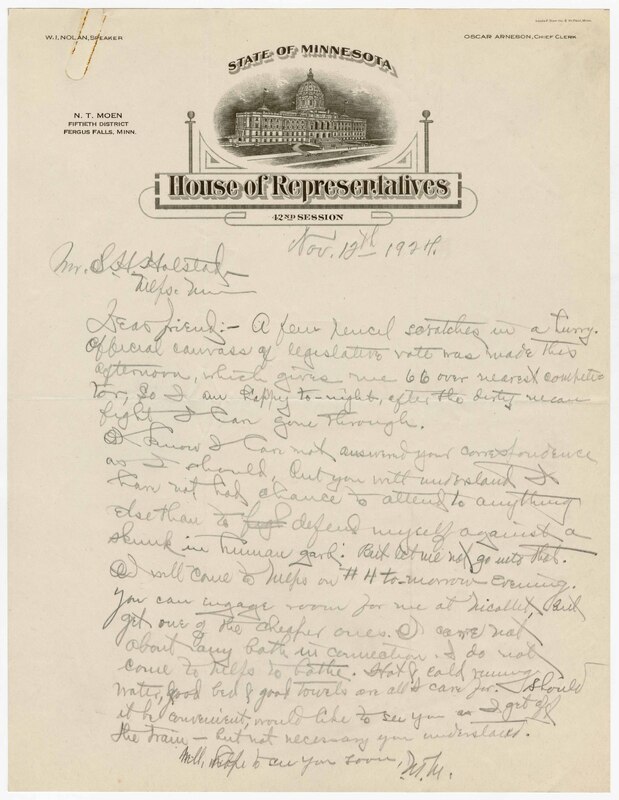 W. I. NOLAN, SPEAKER
OSCAR ARNESON, CHIEF CLERK
STATE OF MINNESOTA
N. T. MOEN
FIFTIETH DISTRICT
FERGUS FALLS, MINN.
House of Representatives
42ND SESSION
Nov. 12th 1924.
Mr. S. H. Holstad
Mpls. Minn
Dear friend:- A few pencil scratches in a hurry.
Official canvass of legislative vote was made this
afternoon, which gives me 66 over nearest competi
tor, So I am happy to-night, after the dirty mean
fight I have gone through.
I know I have not answered your correspondence
as I should, but you will understand I
have not had chance to attend to anything
else than to defend myself against a
skunk in human garb! But let me not go into that.
I will come to Mpls on #4 to-morrow evening.
You can engage room for me at Nicollet, but
get one of the cheaper ones. I care not
about any bath in connection. I do not
come to Mpls to bathe. Hot & cold running
water, good bed & good towels are all I care for. I should
it be convenient, would like to see you as I get off
the train - but not necessary you understand.
Well, hope to see you soon, N.T.M.